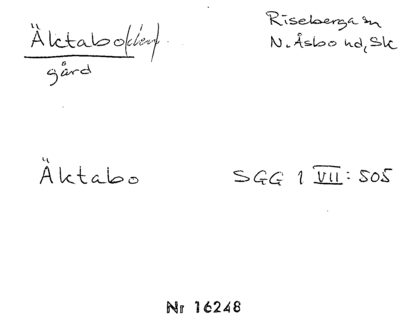 Äktabo(den)
Riseberga sn
gård
N. Åsbo hd, Sk
Äktabo
SGG 1 VII: 505
Nr 16248